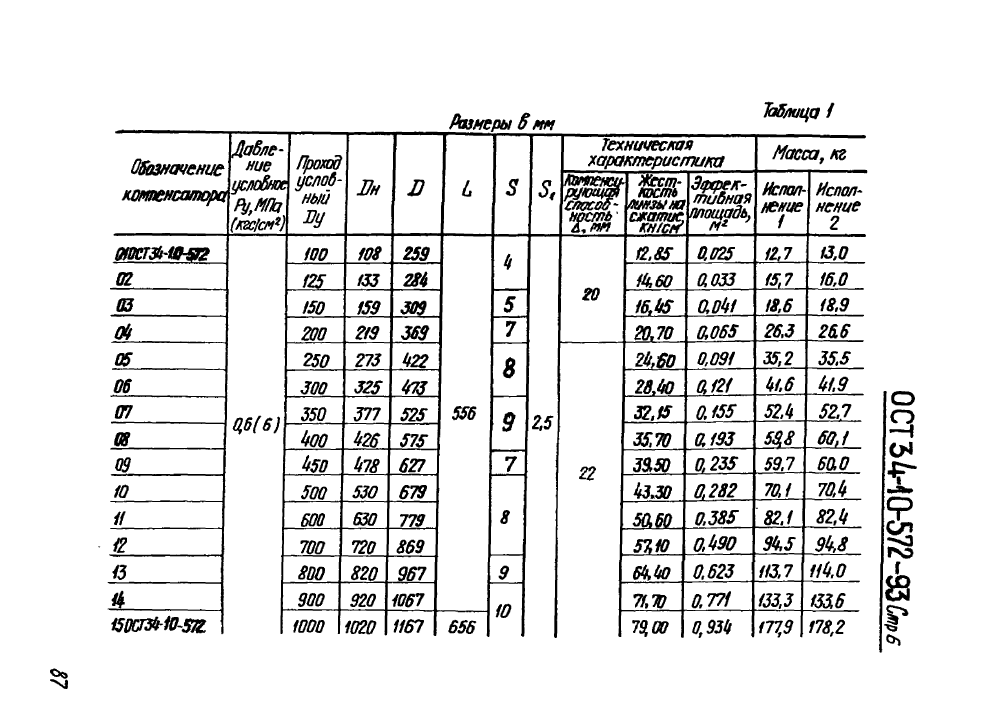 Таблица 1
Размеры в мм
Обозначение компенсатора
Давление условное Ру, МПа (кгс/см²)
Проход условный Ду
Дн
D
L
S
S₁
Техническая характеристика
Компенсирующая способность Δ, мм
Жесткость линзы на сжатие, кН/см
Эффективная площадь, м²
Масса, кг
Исполнение 1
Исполнение 2
01ОСТ34-10-572 0,6(6) 100 108 259 556 4 2,5 20 12,85 0,025 12,7 13,0
02 125 133 284 14,60 0,033 15,7 16,0
03 150 159 309 5 16,45 0,041 18,6 18,9
04 200 219 369 7 20,70 0,065 26,3 26,6
05 250 273 422 8 22 24,60 0,091 35,2 35,5
06 300 325 473 28,40 0,121 41,6 41,9
07 350 377 525 9 32,15 0,155 52,4 52,7
08 400 426 575 35,70 0,193 59,8 60,1
09 450 478 627 7 39,50 0,235 59,7 60,0
10 500 530 679 8 43,30 0,282 70,1 70,4
11 600 630 779 50,60 0,385 82,1 82,4
12 700 720 869 57,10 0,490 94,5 94,8
13 800 820 967 9 64,40 0,623 113,7 114,0
14 900 920 1067 10 71,70 0,771 133,3 133,6
15ОСТ34-10-572 1000 1020 1167 656 79,00 0,934 177,9 178,2
ОСТ 34-10-572-93 Стр 6
87